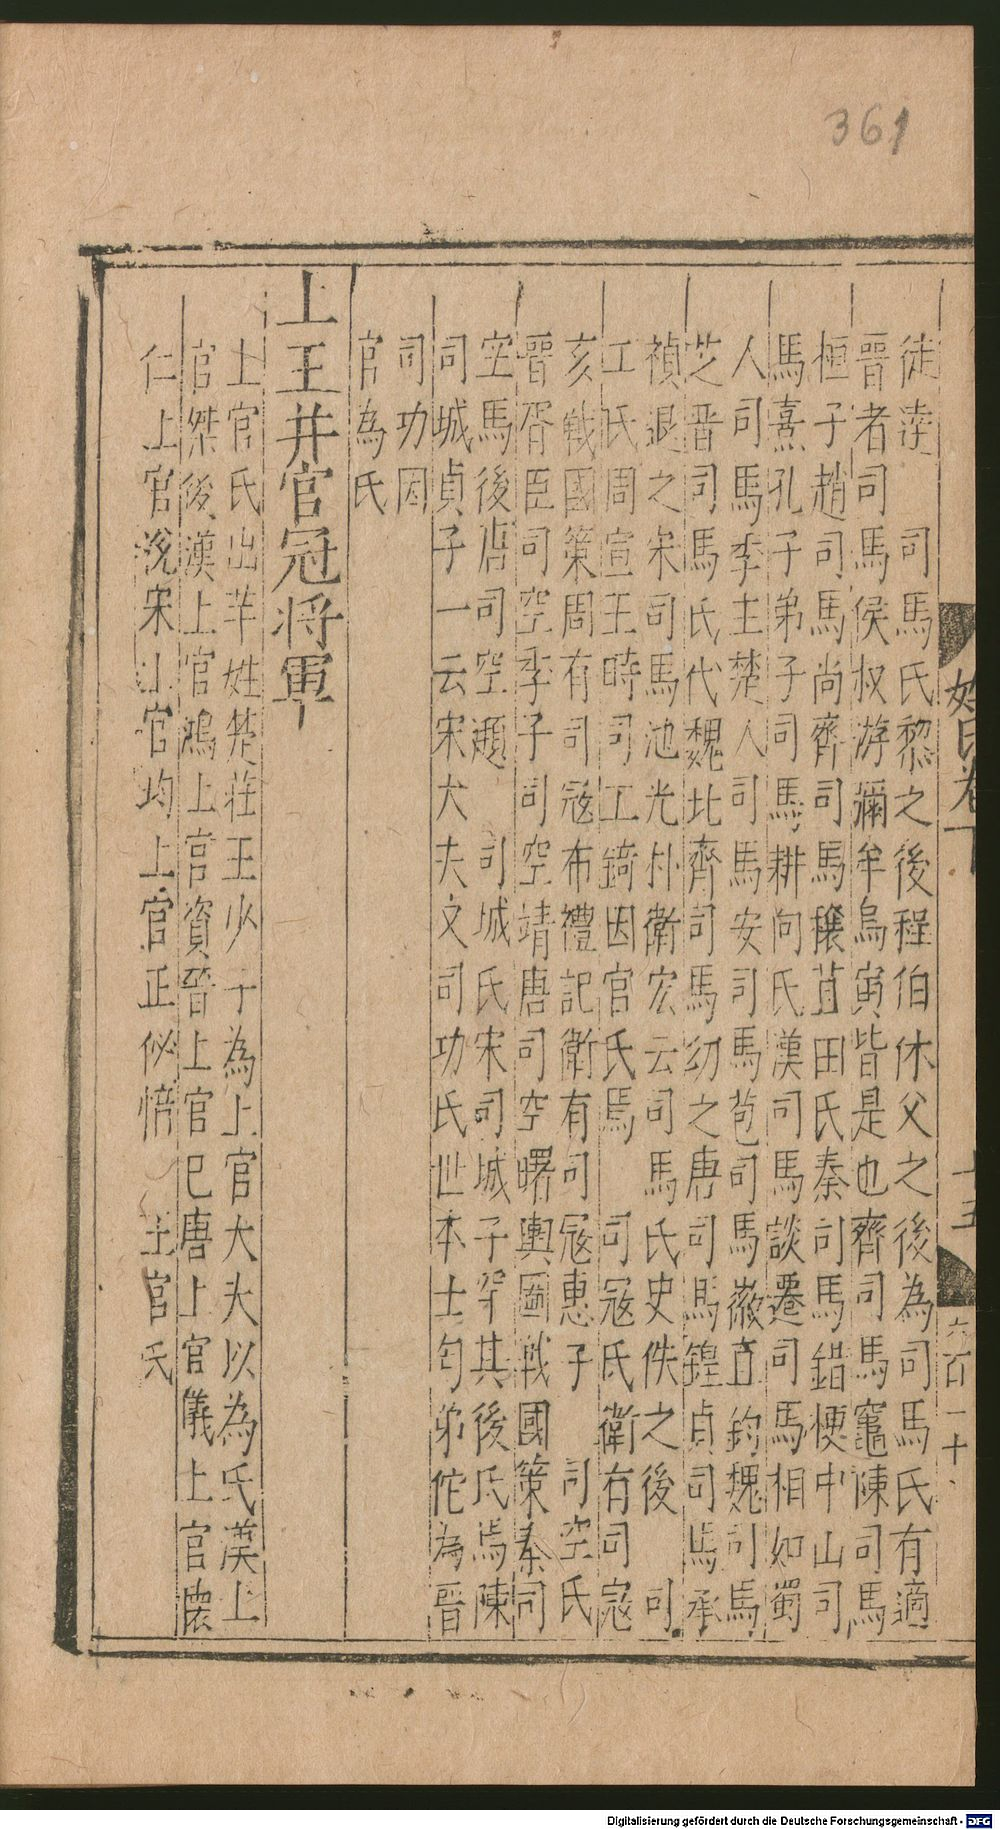 361
姓氏卷下
十五
六百一十
徒逵　司馬氏黎之後程伯休父之後為司馬氏有適
晋者司馬侯叔游彌牟烏寅皆是也齊司馬竈陳司馬
桓子趙司馬尚齊司馬穰苴田氏秦司馬錯梗中山司
馬熹孔子弟子司馬耕向氏漢司馬談遷司馬相如蜀
人司馬季主楚人司馬安司馬苞司馬徽直鈞魏司馬
芝晋司馬氏代魏北齊司馬幼之唐司馬鍠貞司馬承
禎退之宋司馬池光朴衛宏云司馬氏史佚之後　司
工氏周宣王時司工錡因官氏焉　司寇氏衛有司寇
亥戰國策周有司寇布禮記衛有司寇惠子　司空氏
晋胥臣司空季子司空靖唐司空曙輿圖戰國策秦司
空馬後唐司空頲　司城氏宋司城子罕其後氏焉陳
司城貞子一云宋大夫文司功氏世本士匄弟佗為晋
司功因
官為氏
上王并官冠将軍
上官氏出芊姓楚莊王少子為上官大夫以為氏漢上
官桀後漢上官鴻上官資晉上官巳唐上官儀上官懐
仁上官涗宋上官均上官正必愔　王官氏
Digitalisierung gefördert durch die Deutsche Forschungsgemeinschaft - DFG